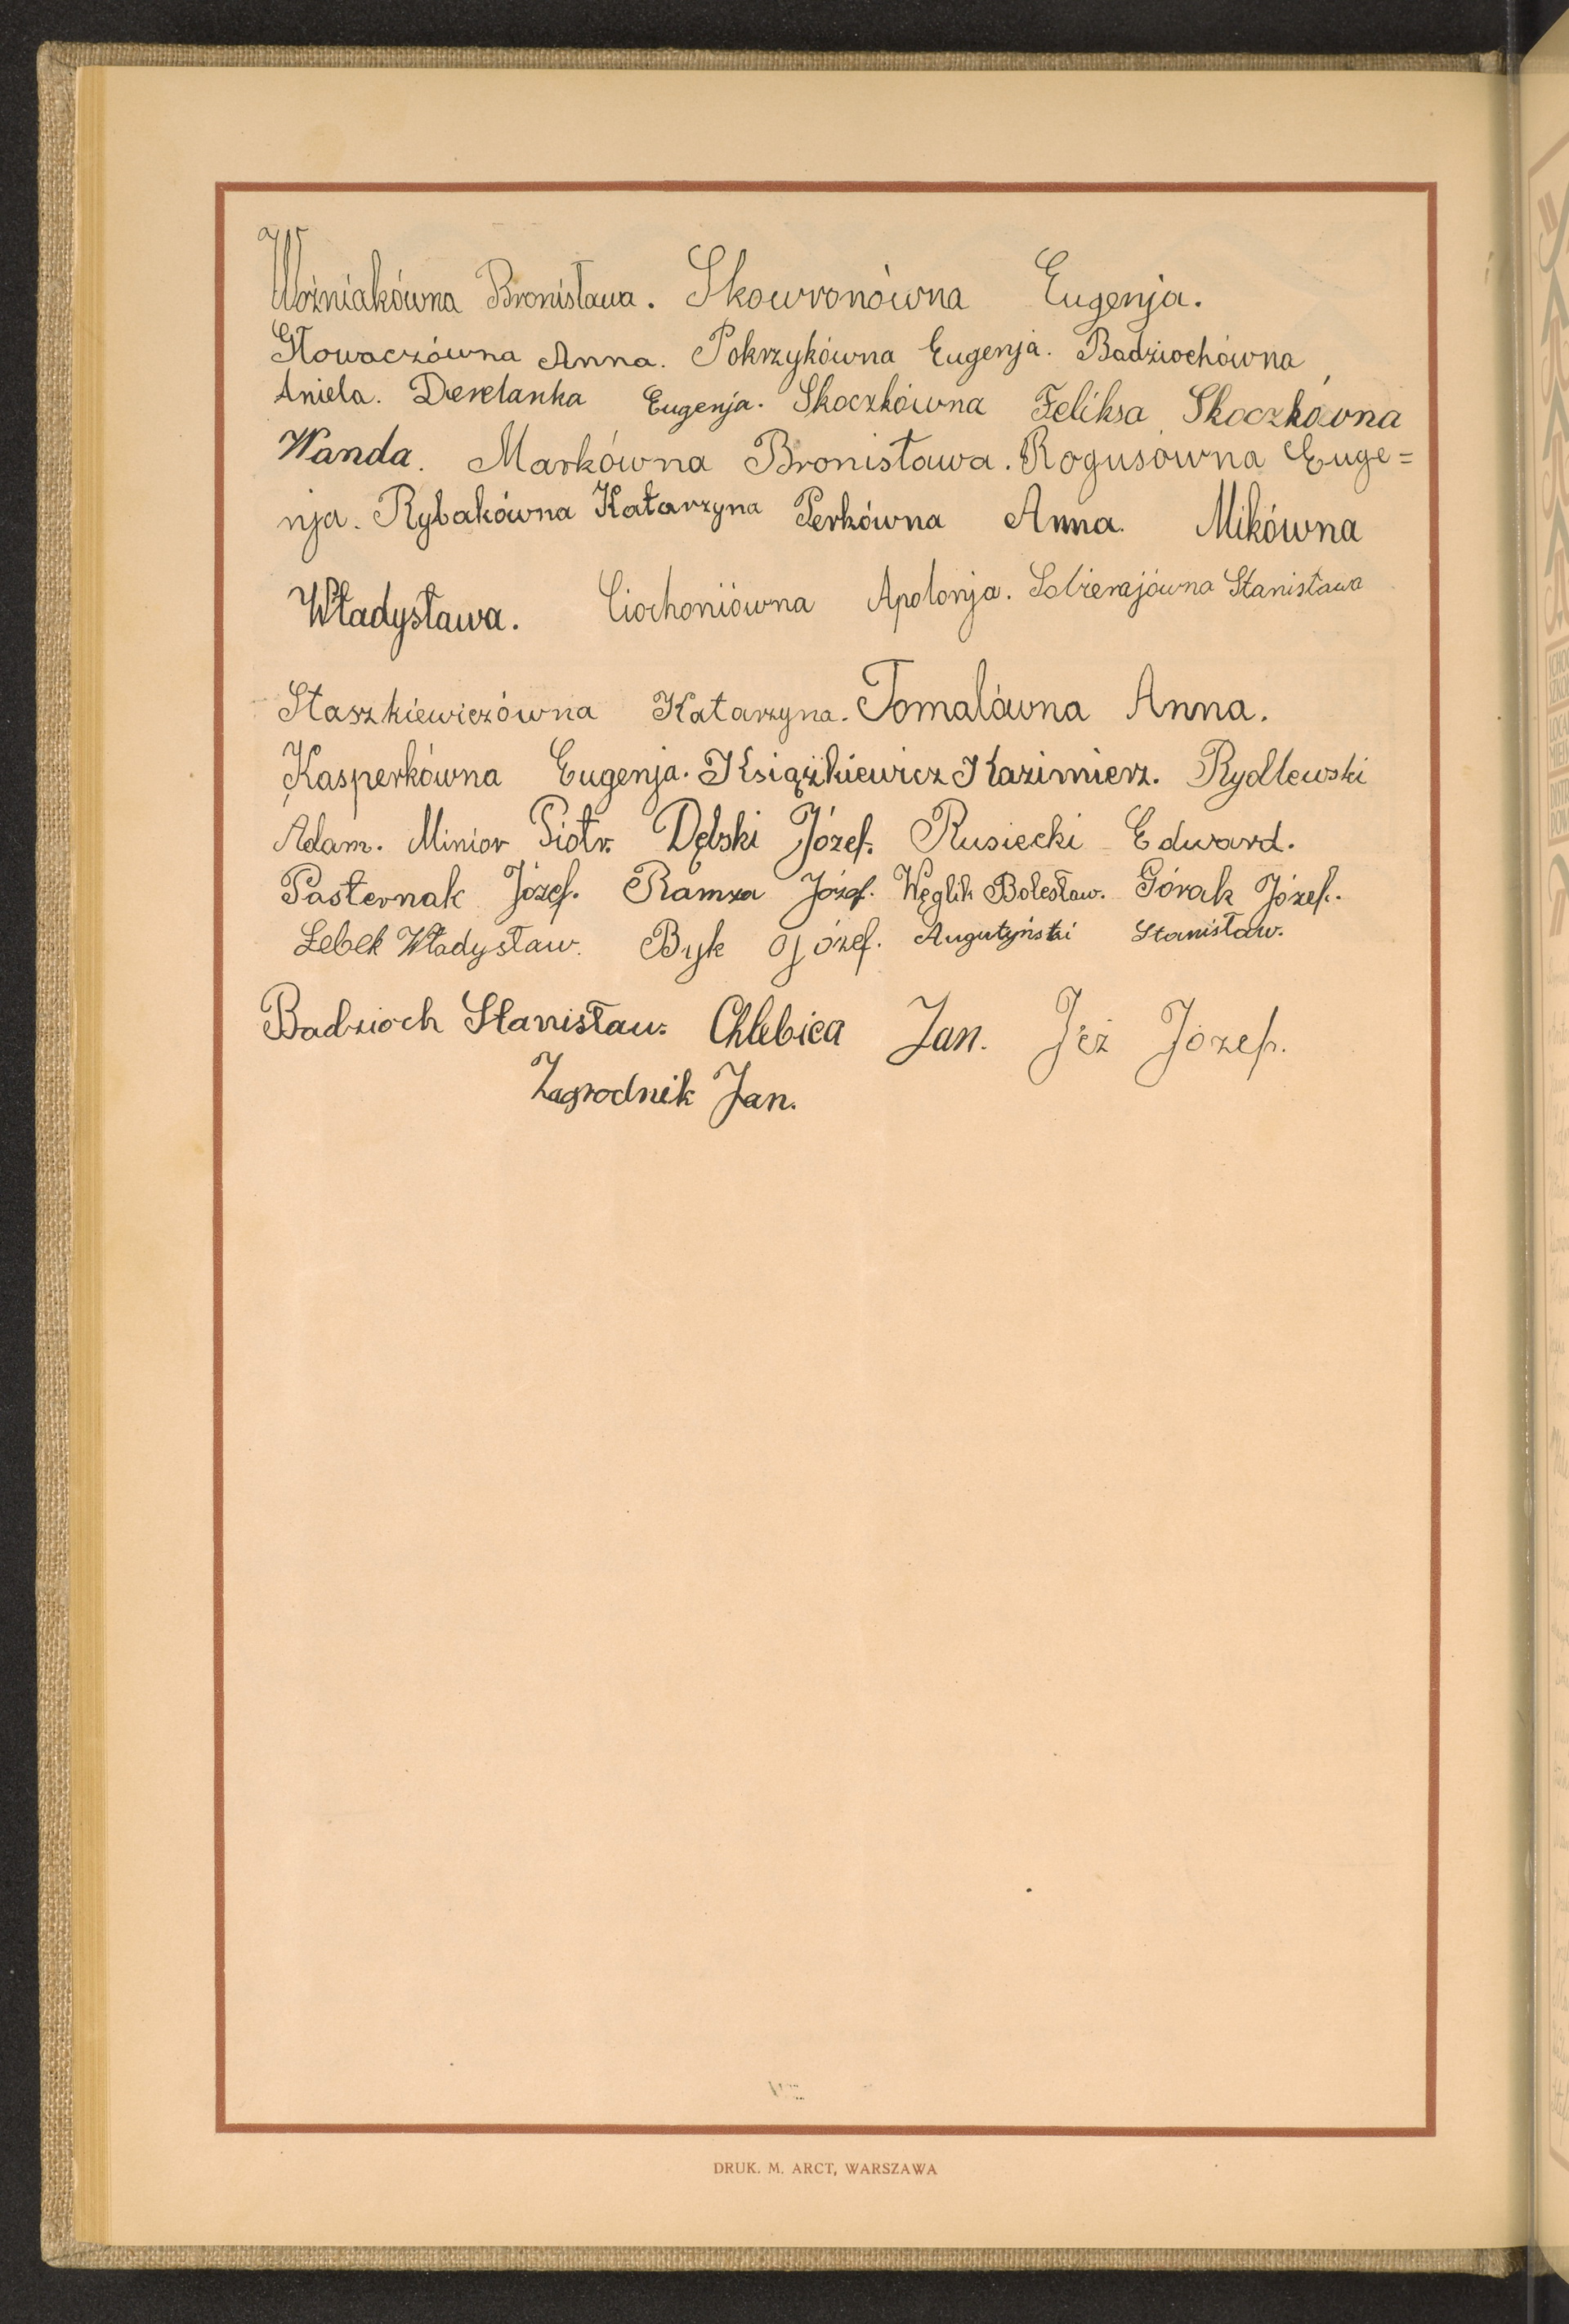 Woźniakówna Bronisława. Skowronówna Eugenja.
Głowaczówna Anna. Pokrzykówna Eugenja. Badziochówna
Aniela. Derelanka Eugenja. Skoczkówna Feliksa Skoczkówna
Wanda. Markówna Bronisława. Rogusówna Euge=
nja. Rybakówna Katarzyna Perkówna Anna. Mikówna
Władysława. Ciochoniówna Apolonja. Sobierajówna Stanisława
Staszkiewiczówna Katarzyna. Tomalówna Anna.
Kasperkówna Eugenja. Książkiewicz Kazimierz. Rydlewski
Adam. Minior Piotr. Dębski Józef. Rusiecki Edward.
Pasternak Józef. Ramza Józef. Węglik Bolesław. Górak Józef.
Lebek Władysław. Byk Józef. Augutyński Stanisław.
Badzioch Stanisław. Chlebica Jan. Jeż Józef.
Zagrodnik Jan.
DRUK. M. ARCT, WARSZAWA